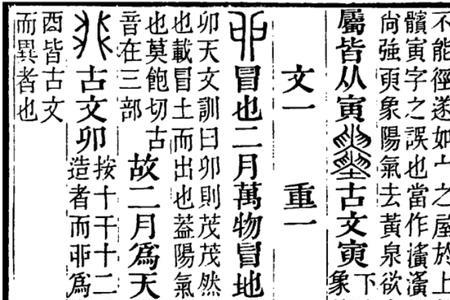 不能徑遂如宀之屋於上
髕寅字之誤也當作濥濥
尙強頁象陽氣去黃泉欲
屬皆从寅
古文寅
下
象
文一 重一
冒也二月萬物冒地
卯天文訓曰卯則茂茂然
也載冒土而出也葢陽氣
也莫飽切古
音在三部
故二月爲天
古文卯
按十干十二
造者而丣爲
酉皆古文
而異者也